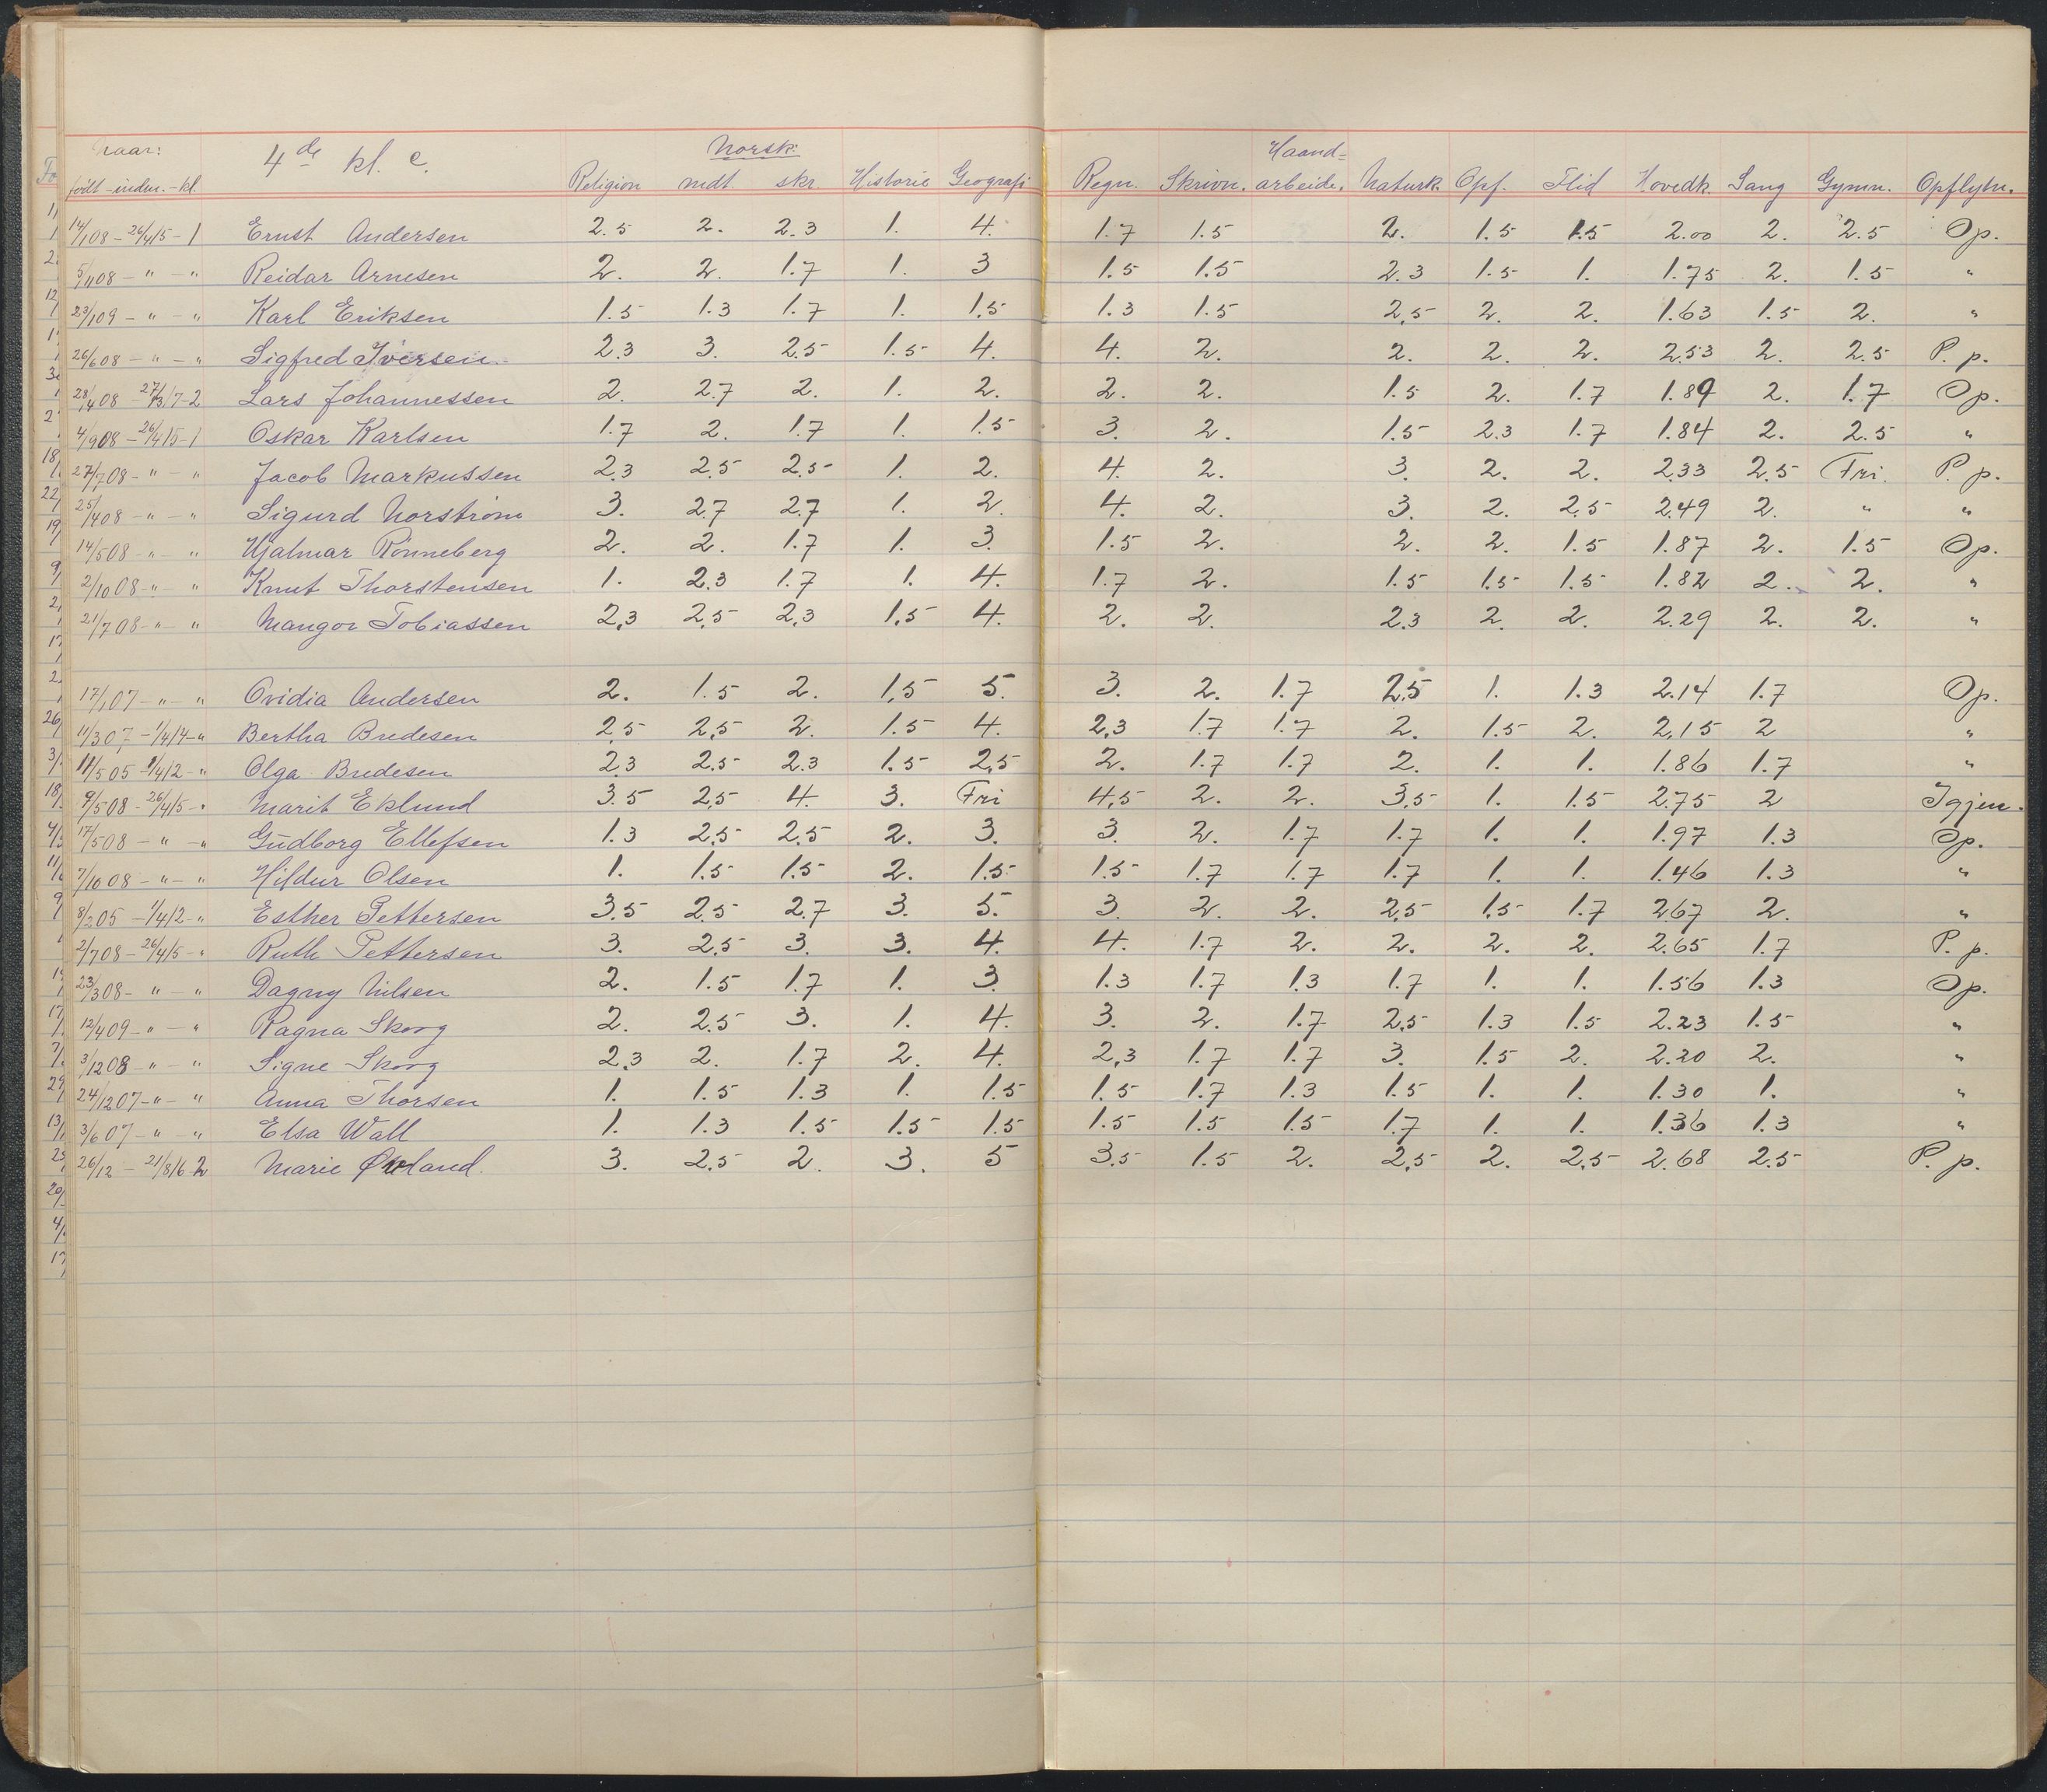 Naar: 4de kl. c. Norsk: Haand=
født - indm. - kl. Religion mdt. skr. Historie Geografi Regn. Skrivn. arbeide. Naturk. Opf. Flid Hovedk. Sang Gymn. Opflytn.
14/1 08 - 26/4 15 - 1 Ernst Andersen 2.5 2. 2.3 1. 4. 1.7 1.5 2. 1.5 1.5 2.00 2. 2.5 Op.
5/11 08 - " - " Reidar Arnesen 2. 2. 1.7 1. 3 1.5 1.5 2.3 1.5 1. 1.75 2. 1.5 "
23/1 09 - " - " Karl Eriksen 1.5 1.3 1.7 1. 1.5 1.3 1.5 2.5 2. 2. 1.63 1.5 2. "
26/6 08 - " - " Sigfred Iversen 2.3 3. 2.5 1.5 4. 4. 2. 2. 2. 2. 2.53 2. 2.5 P. p.
28/4 08 - 27/3 17 - 2 Lars Johannessen 2. 2.7 2. 1. 2. 2. 2. 1.5 2. 1.7 1.89 2. 1.7 Op.
4/9 08 - 26/4 15 - 1 Oskar Karlsen 1.7 2. 1.7 1. 1.5 3. 2. 1.5 2.3 1.7 1.84 2. 2.5 "
27/7 08 - " - " Jacob Markussen 2.3 2.5 2.5 1. 2. 4. 2. 3. 2. 2. 2.33 2.5 Fri. P. p.
25/4 08 - " - " Sigurd Norstrøm 3. 2.7 2.7 1. 2. 4. 2. 3. 2. 2.5 2.49 2. " "
14/5 08 - " - " Hjalmar Rönneberg 2. 2. 1.7 1. 3. 1.5 2. 2. 2. 1.5 1.87 2. 1.5 Op.
2/10 08 - " - " Knut Thorstensen 1. 2.3 1.7 1. 4. 1.7 2. 1.5 1.5 1.5 1.82 2. 2. "
21/7 08 - " - " Mangor Tobiassen 2.3 2.5 2.3 1.5 4. 2. 2. 2.3 2. 2. 2.29 2. 2. "
17/1 07 - " - " Ovidia Andersen 2. 1.5 2. 1.5 5. 3. 2. 1.7 2.5 1. 1.3 2.14 1.7 Op.
11/3 07 - 1/4 14 - " Bertha Bredesen 2.5 2.5 2. 1.5 4. 2.3 1.7 1.7 2. 1.5 2. 2.15 2 "
11/5 05 - 1/4 12 - " Olga Bredesen 2.3 2.5 2.3 1.5 2.5 2. 1.7 1.7 2. 1. 1. 1.86 1.7 "
9/5 08 - 26/4 15 - " Marit Eklund 3.5 2.5 4. 3. Fri 4.5 2. 2. 3.5 1. 1.5 2.75 2 Igjen.
17/5 08 - " - " Gudborg Ellefsen 1.3 2.5 2.5 2. 3. 3. 2. 1.7 1.7 1. 1. 1.97 1.3 Op.
7/10 08 - " - " Hildur Olsen 1. 1.5 1.5 2. 1.5 1.5 1.7 1.7 1.7 1. 1. 1.46 1.3 "
8/2 05 - 1/4 12 - " Esther Pettersen 3.5 2.5 2.7 3. 5. 3. 2. 2. 2.5 1.5 1.7 2.67 2. "
2/7 08 - 26/4 15 - " Ruth Pettersen 3. 2.5 3. 3. 4. 4. 1.7 2. 2. 2. 2. 2.65 1.7 P. p.
23/3 08 - " - " Dagny Nilsen 2. 1.5 1.7 1. 3. 1.3 1.7 1.3 1.7 1. 1. 1.56 1.3 Op.
12/4 09 - " - " Ragna Skoog 2. 2.5 3. 1. 4. 3. 2. 1.7 2.5 1.3 1.5 2.23 1.5 "
3/12 08 - " - " Signe Skoog 2.3 2. 1.7 2. 4. 2.3 1.7 1.7 3. 1.5 2. 2.20 2. "
24/12 07 - " - " Anna Thorsen 1. 1.5 1.3 1. 1.5 1.5 1.7 1.3 1.5 1. 1. 1.30 1. "
3/6 07 - " - " Elsa Wall 1. 1.3 1.5 1.5 1.5 1.5 1.5 1.5 1.7 1. 1. 1.36 1.3 "
26/12 - 21/8 16 2 Marie Øvland. 3. 2.5 2. 3. 5 3.5 1.5 2. 2.5 2. 2.5 2.68 2.5 P. p.